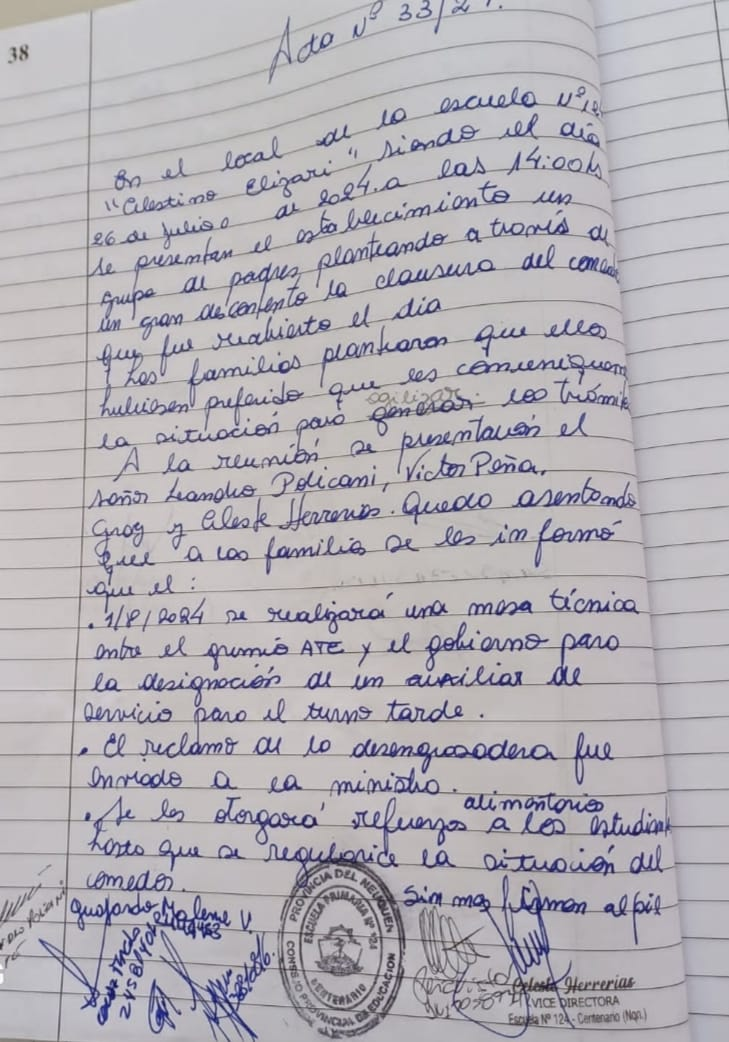 38
Acta Nº 33/24.
En el local de la escuela Nº 124
"Celestino Elizari", siendo el día
26 de julio de 2024 a las 14:00hs
se presentan el establecimiento un
grupo de padres planteando a través de
un gran descontento la clausura del comedor
que fue reabierto el día
Las familias plantearon que ellos
hubiesen preferido que les comuniquen
agilizar
la situación para generar los trámites
A la reunión se presentaron el
señor Leandro Policani, Victor Peña,
y Celeste Herrerias. Quedo asentado
que a las familias se les informó
que el:
. 1/8/2024 se realizará una mesa técnica
entre el gremio ATE y el gobierno para
la designación de un auxiliar de
servicio para el turno tarde.
. El reclamo de la desengrasadera fue
enviado a la ministro.
alimentarios
. Se les otorgará refuerzos a los estudiantes
hasta que se regularice la situación del
comedor.
Sin mas firman al pie
PROVINCIA DEL NEUQUEN
CONSEJO PROVINCIAL DE EDUCACION
ESCUELA PRIMARIA Nº 124
CENTENARIO
Celeste Herrerias
VICE DIRECTORA
Escuela Nº 124 - Centenario (Nqn.)